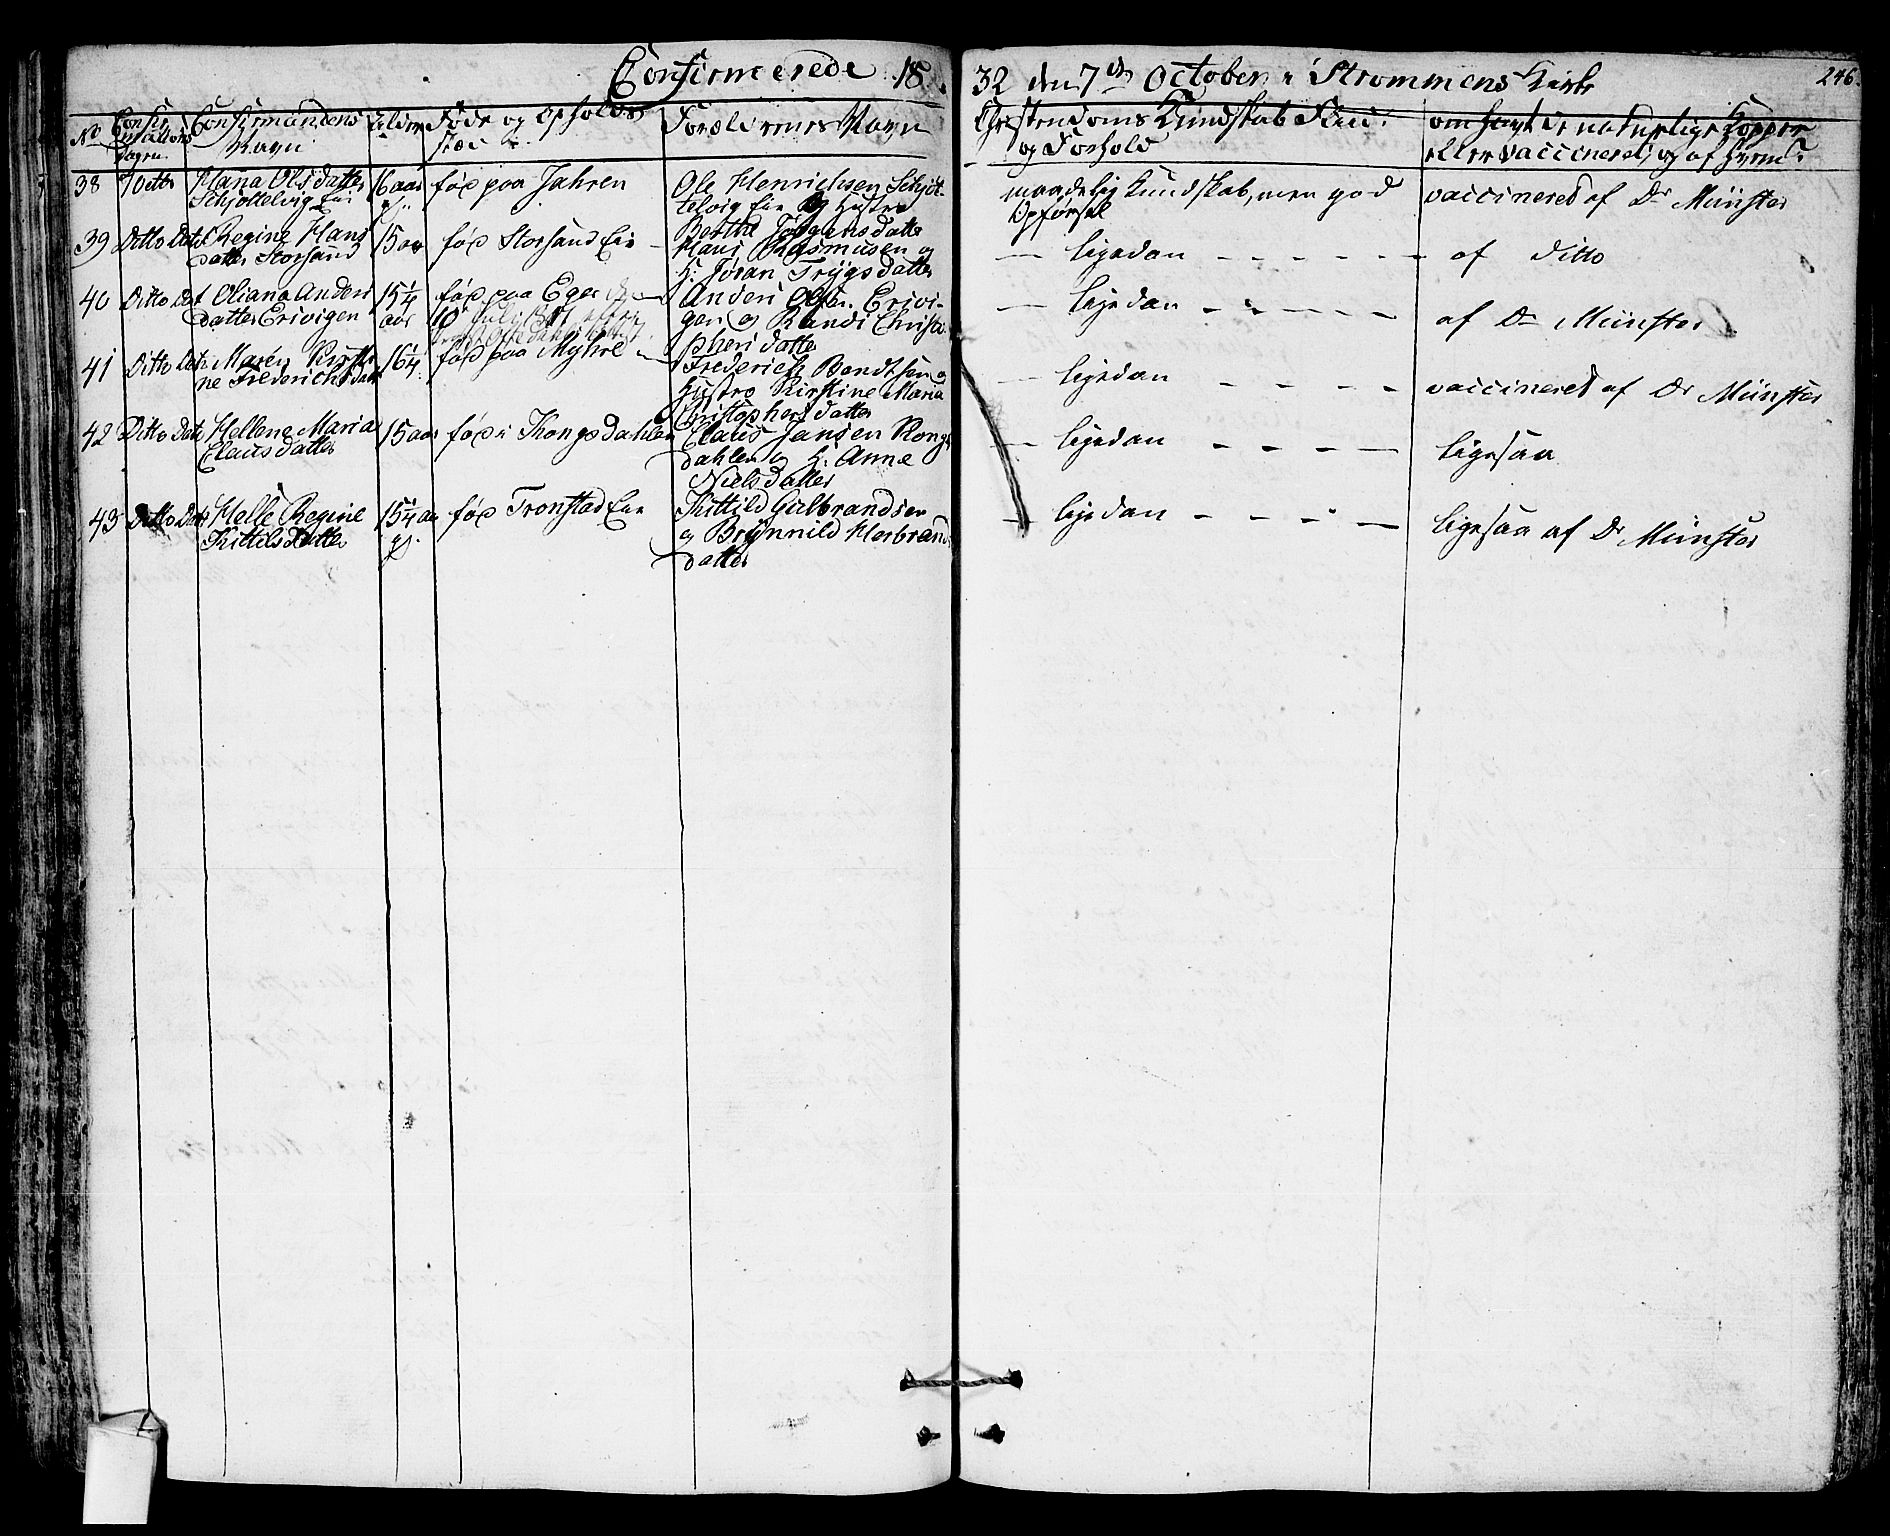 Confirmerede 18
32 den 7de October i Strømmens Kirke
246.
No
Confirmationsdagen.
Confirmandens Navn
Alder
Føde og Opholds Sted
Forældrenes Navn
Christendoms Kundskab Flid
og Forhold
om havt de naturlige Kopper
eller vaccineret, og af hvem?
38 7 Octb
Hana Olsdatter
Schjøttelvig Eie
16 aar
fød paa Jahren
Ole Henrichsen Schjøt-
telvig Eie og Hustro
Berthe Jørgensdatter
maadelig Kundskab, men god
Opførsel
vaccineret af Dr Münster
39 Ditto Dato
Regine Hans
datter Storsand
15 aar
fød Storsand Eie
Hans Rasmusen og
H: Jøran Trygsdatter
ligedan
af Ditto
40 Ditto Dat
Oliana Anders
datter Erivigen
15 1/4
aar
fød paa Eger
10 Juli 1817
Anders Olsen Erivi-
gen og Randi Christo
phersdatter
ligedan
af Dr Münster
41 Ditto Dato
Maren Kirsti
ne Frederichsdatt
16 1/4
fød paa Myhre
Frederich Bendtsen og
Hustro Kirstine Maria
Christophersdatter
ligedan
vaccineret af Dr Münster
42 Ditto Dato
Hellene Maria
Clausdatter
15 aar
fød i Kongsdahlen
Claus Jansen Kongs
dahlen og H: Anne
Nielsdatter
ligedan
ligesaa
43 Ditto Dato
Helle Regine
Kittilsdatter
15 1/4 aa
fød Tronstad Eie
Kittild Gulbrandsen
og Brynnild Herbrands
datter
ligedan
ligesaa af Dr Münster